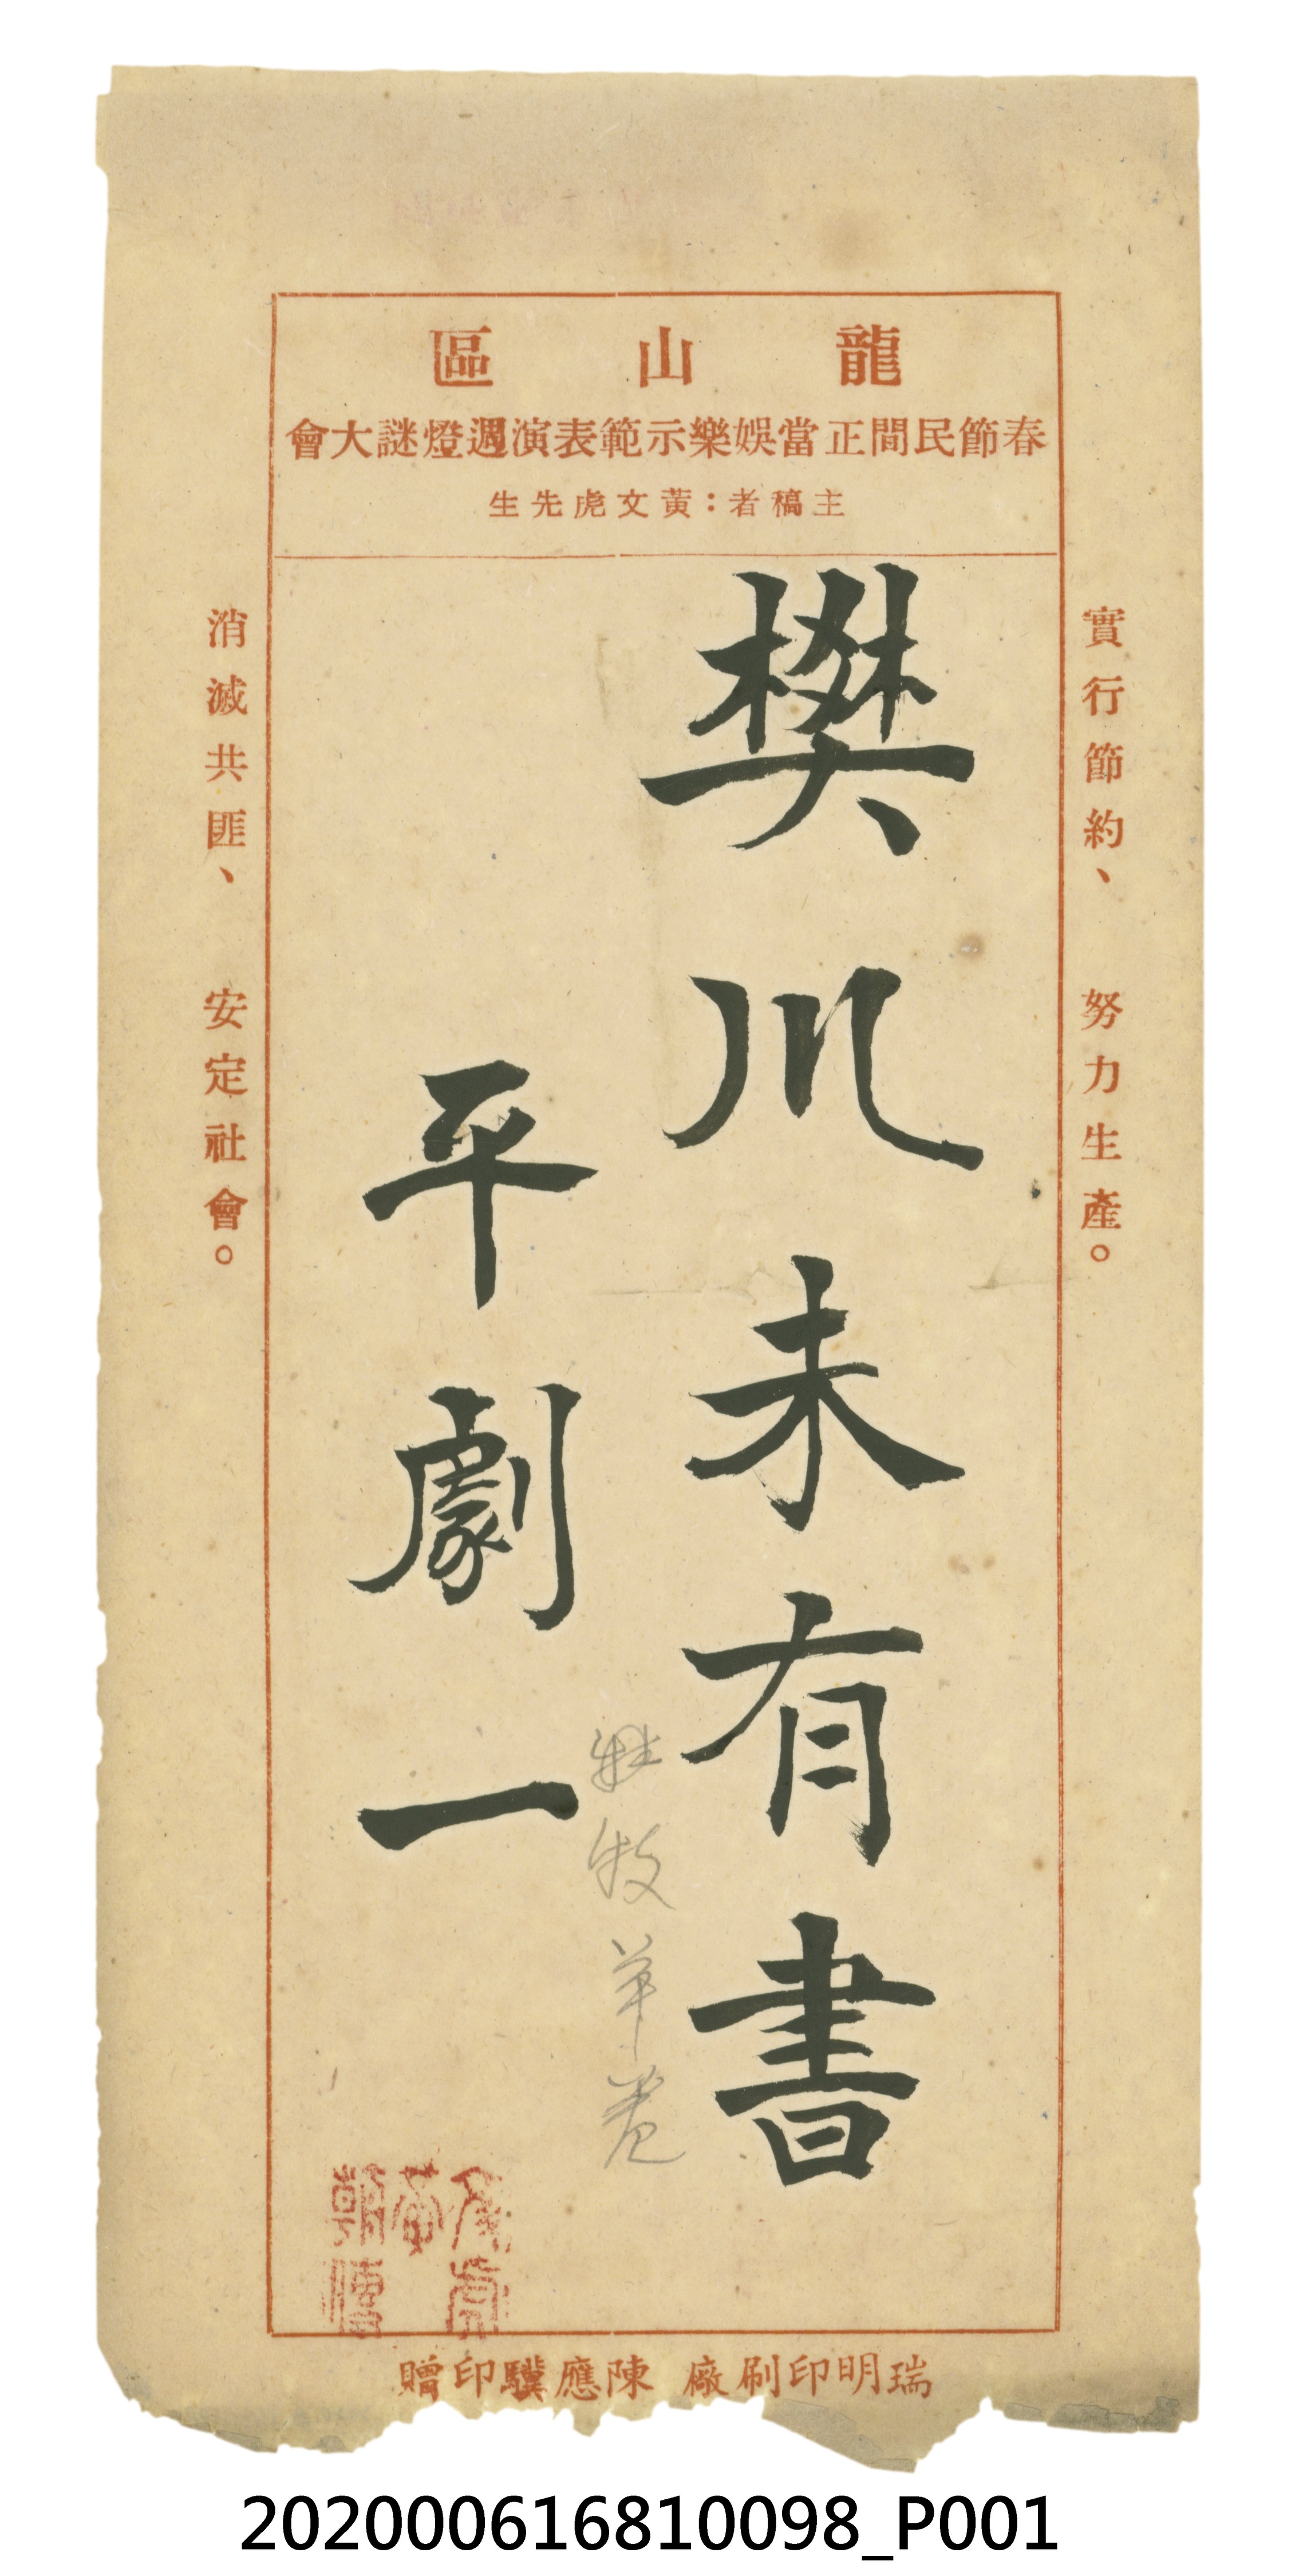 龍山區
春節民間正當娛樂示範表演週燈謎大會
主稿者：黃文虎先生
實行節約、努力生產。
樊川未有書
牧羊卷
平劇一
消滅共匪、安定社會。
瑞明印刷廠 陳應驥印贈
202000616810098_P001